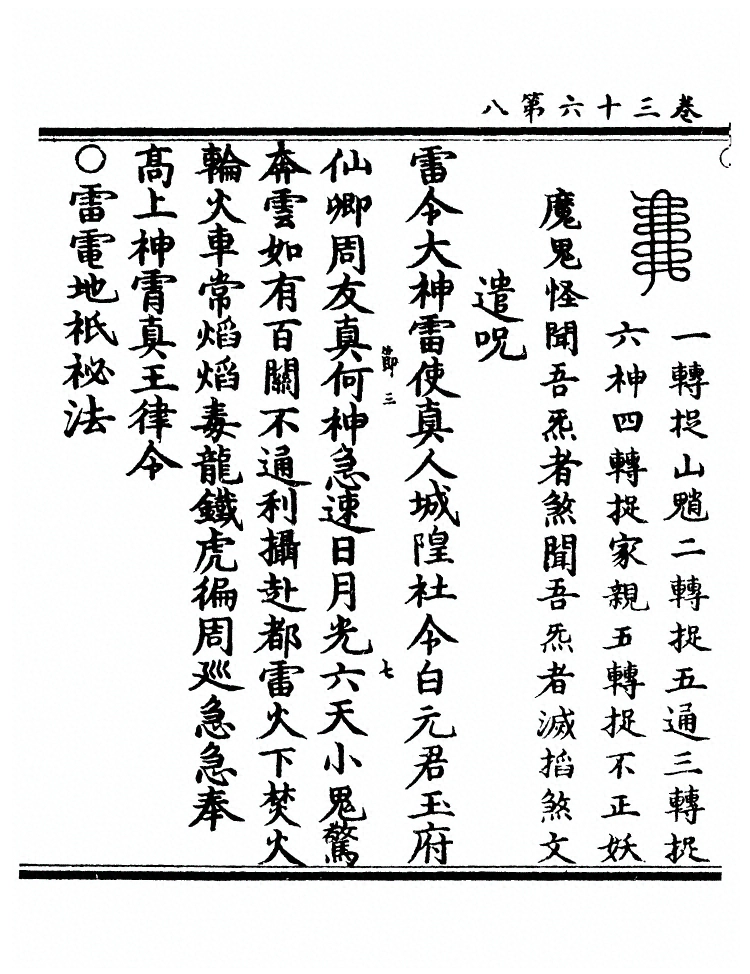 卷三十六第八
一轉捉山魈二轉捉五通三轉捉
六神四轉捉家親五轉捉不正妖
魔鬼怪聞吾炁者煞聞吾炁者滅搯煞文
遣呪
雷令大神雷使真人城隍社令白元君玉府
仙卿周友真何神急速日月光六天小鬼驚
節三
七
奔雲如有百關不通利攝赴都雷火下焚火
輪火車常焰焰毒龍鐵虎徧周巡急急奉
高上神霄真王律令
○雷電地祇祕法